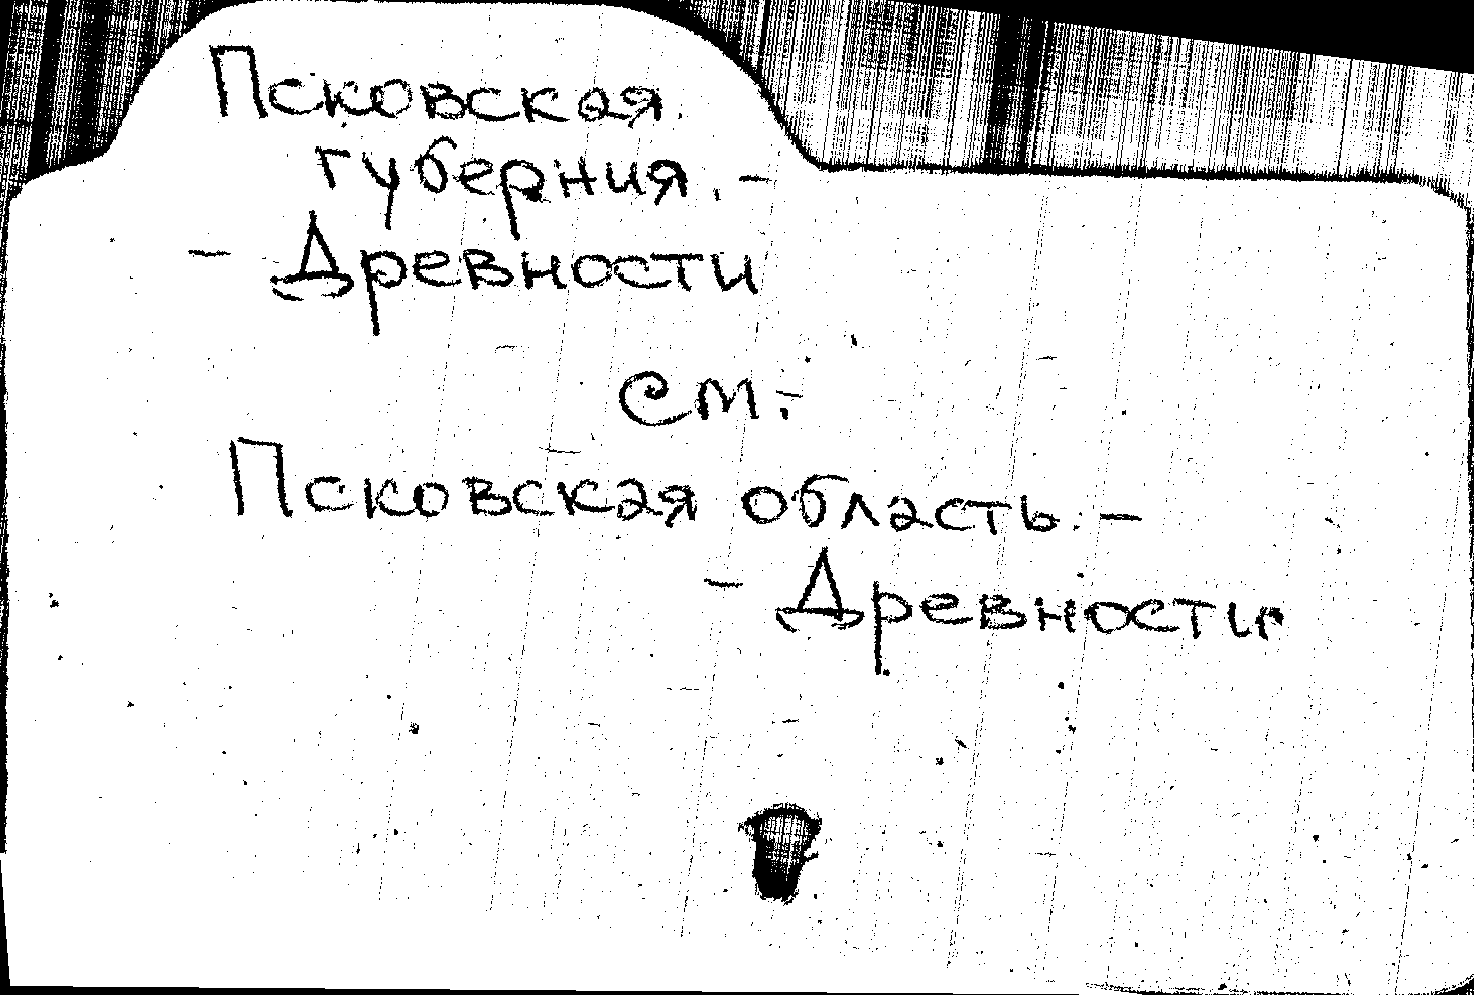 Псковская
губерния. -
- Древности
см.
Псковская область. -
- Древности